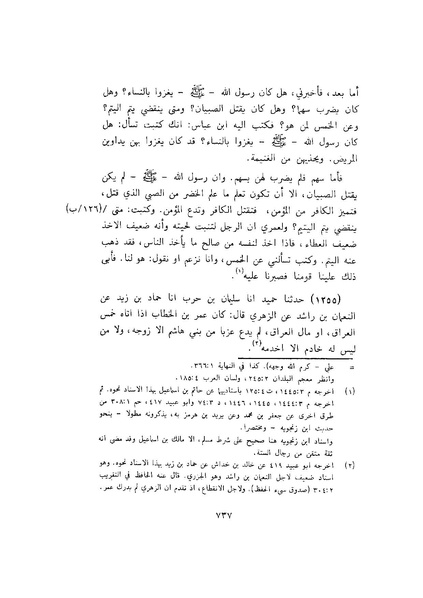 أما بعد، فأخبرني، هل كان رسول الله – ﷺ – يغزوا بالنساء؟ وهل
كان يضرب سهما؟ وهل كان يقتل الصبيان؟ ومتى ينقضي يتم اليتيم؟
وعن الخمس لمن هو؟ فكتب اليه ابن عباس: انك كتبت تسأل: هل
كان رسول الله – ﷺ – يغزوا بالنساء؟ قد كان يغزوا بهن يداوين
المريض. ويحذين من الغنيمة.
فأما سهم فلم يضرب لهن بسهم. وان رسول الله – ﷺ – لم يكن
يقتل الصبيان، الا أن تكون تعلم ما علم الخضر من الصبي الذي قتل،
فتميز الكافر من المؤمن، فتقتل الكافر وتدع المؤمن. وكتبت: متى /(١٢٦/ب)
ينقضي يتم اليتيم؟ ولعمري ان الرجل لتنبت لحيته وأنه ضعيف الاخذ
ضعيف العطاء، فاذا اخذ لنفسه من صالح ما يأخذ الناس، فقد ذهب
عنه اليتم. وكتب تسألني عن الخمس، وانا نزعم او نقول: هو لنا. فأبى
ذلك علينا قومنا فصبرنا عليه(١).
(١٢٥٥) حدثنا حميد انا سليمان بن حرب انا حماد بن زيد عن
النعمان بن راشد عن الزهري قال: كان عمر بن الخطاب اذا اتاه خمس
العراق، او مال العراق، لم يدع عزبا من بني هاشم الا زوجه، ولا من
ليس له خادم الا اخدمه(٢).
= علي – كرم الله وجهه). كذا في النهاية ٣٦٦:١.
وانظر معجم البلدان ٢٤٥:٢، ولسان العرب ١٨٥:٤.
(١) اخرجه م ١٤٤٥:٣، ت ١٢٥:٤ باسناديهما عن حاتم بن اسماعيل بهذا الاسناد نحوه. ثم
اخرجه م ١٤٤٤:٣، ١٤٤٥، ١٤٤٦، د ٧٤:٣ وابو عبيد ٤١٧، حم ٣٠٨:١ من
طرق اخرى عن جعفر بن محمد وعن يزيد بن هرمز به، يذكرونه مطولا – بنحو
حديث ابن زنجويه – ومختصرا.
واسناد ابن زنجويه هنا صحيح على شرط مسلم، الا مالك بن اسماعيل وقد مضى انه
ثقة متقن من رجال الستة.
(٢) اخرجه ابو عبيد ٤١٩ عن خالد بن خداش عن حماد بن زيد بهذا الاسناد نحوه. وهو
اسناد ضعيف لاجل النعمان بن راشد وهو الجزري. قال عنه الحافظ في التقريب
٣٠٤:٢ (صدوق سيء الحفظ). ولاجل الانقطاع، اذ تقدم ان الزهري لم يدرك عمر.
٧٣٧